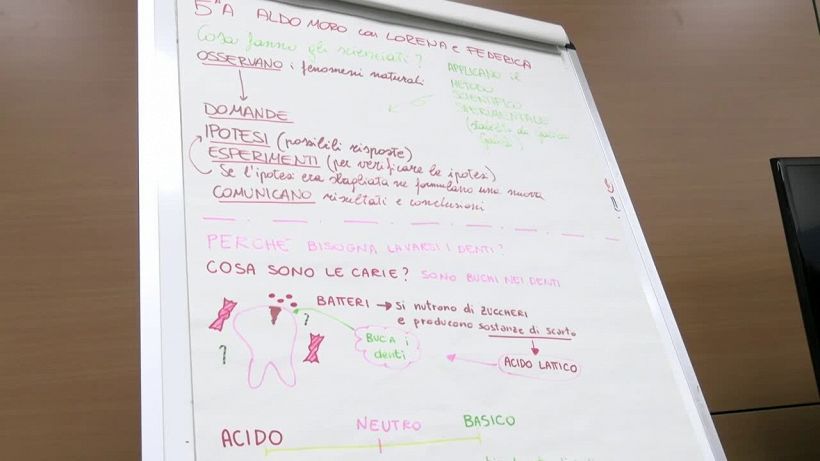 5ªA ALDO MORO con LORENA e FEDERICA
Cosa fanno gli scienziati?
OSSERVANO i fenomeni naturali
APPLICANO il
METODO
SCIENTIFICO
SPERIMENTALE
DOMANDE
IPOTESI (possibili risposte)
ESPERIMENTI (per verificare le ipotesi)
Se l'ipotesi era sbagliata ne formulano una nuova
COMUNICANO risultati e conclusioni
PERCHÉ BISOGNA LAVARSI I DENTI?
COSA SONO LE CARIE? SONO BUCHI NEI DENTI
BATTERI → si nutrono di ZUCCHERI
e producono sostanze di scarto
?
?
BUCA i
denti
ACIDO LATTICO
ACIDO NEUTRO BASICO